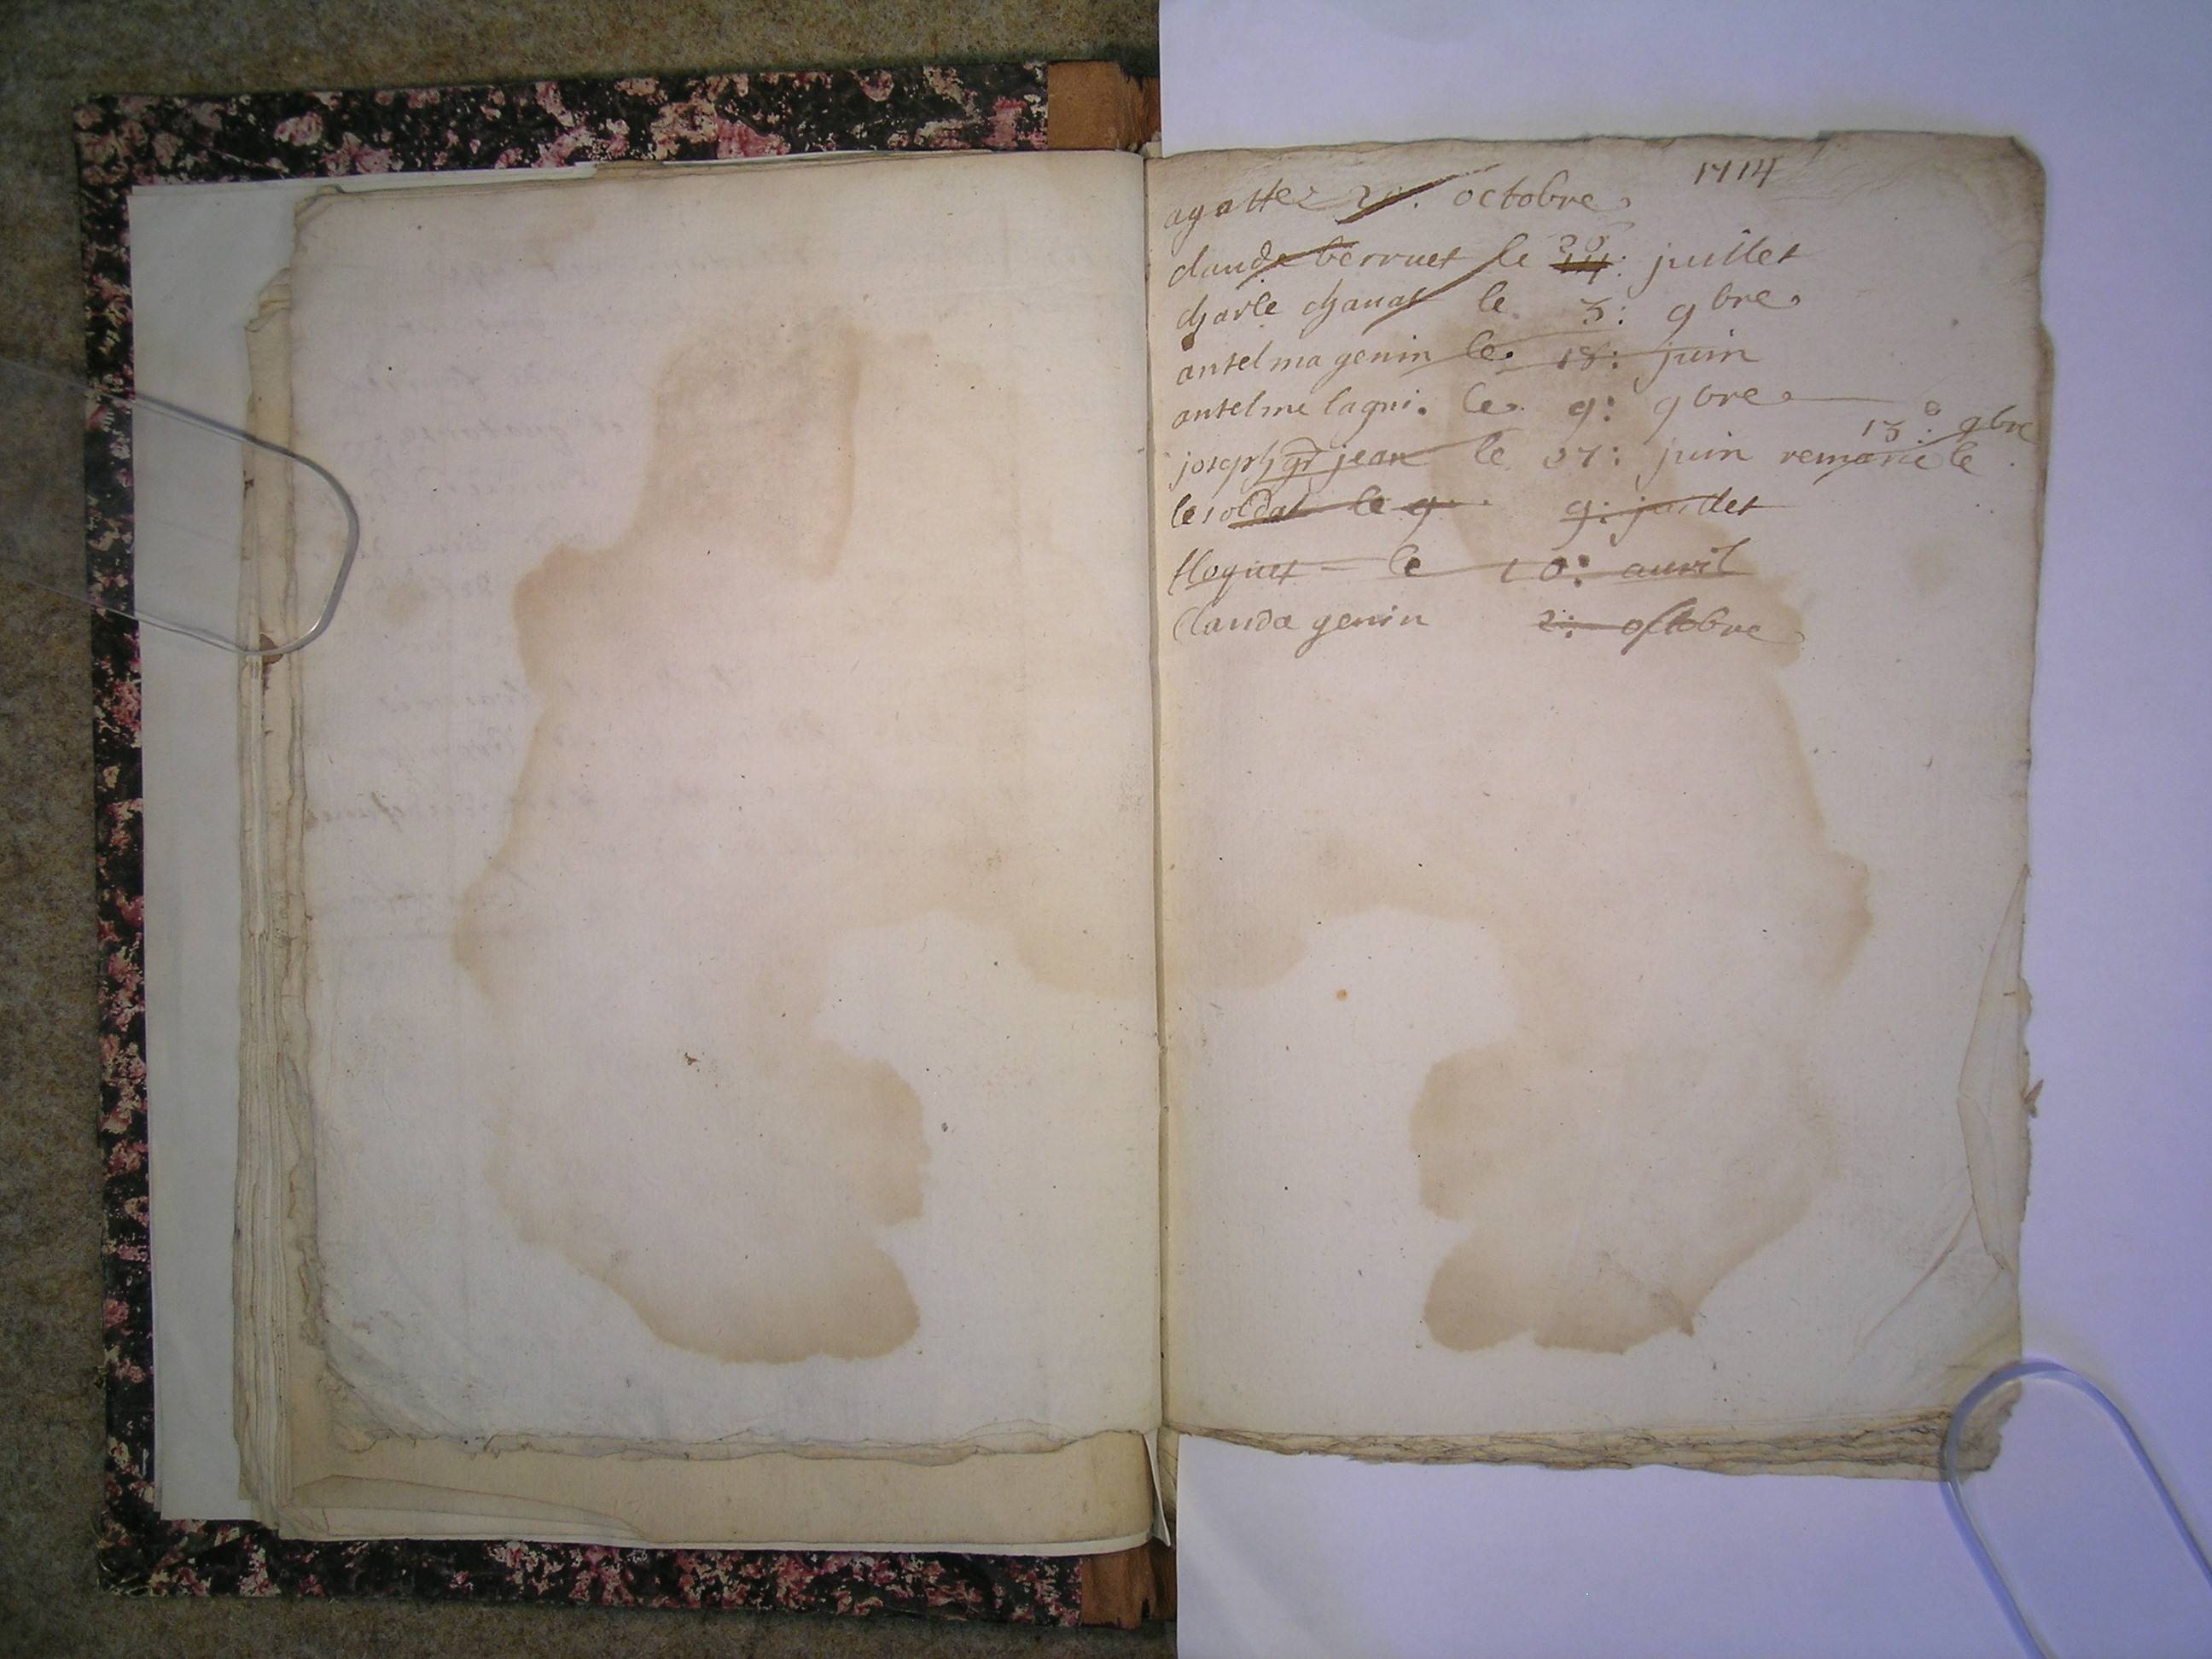 1714
agatte 20. octobre
claude berruet le 28 juillet
charle chanat le 3: 9bre
antelma genin le 18: juin
antelme lagni. le 9: 9bre
13: 9bre
joseph gd jean le 27: juin remarié le
le soldat le 9 9: juillet
floquet le 10: auvril
Clauda genin 2: octobre